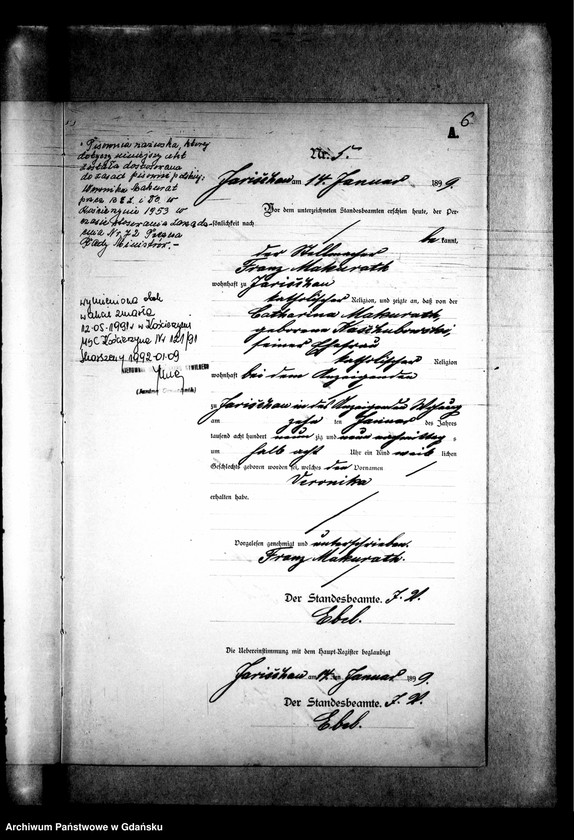 6
A.
Pisownia nazwiska, której
dotyczy niniejszy akt
została dostosowana
do zasad pisowni polskiej:
Weronika Makurat
przez
1953 w
Nr. 72 Prezesa
Rady Ministrów. -
wymieniona obok
zmarła
12-05-1991 w Kościerzynie
USC Kościerzyna Nr 121/91
Skarszewy 1992-01-09
Nr. 5.
Jarischau am 14. Januar 1899.
Vor dem unterzeichneten Standesbeamten erschien heute, der Per-
sönlichkeit nach
be kannt,
der Stellmacher
Franz Makurath
wohnhaft zu Jarischau
katholischer Religion, und zeigte an, daß von der
Catharina Makurath
geborene Kaszubowski,
seiner Ehefrau
katholischer Religion
wohnhaft bei dem Anzeigenden
zu Jarischau in des Anzeigenden Wohnung
am zehn ten Januar des Jahres
tausend acht hundert neun zig und neun nachmittag s
um halb acht Uhr ein Kind weib lichen
Geschlechts geboren worden sei, welches den Vornamen
Veronika
erhalten habe.
Vorgelesen genehmigt und unterschrieben.
Franz Makurath.
Der Standesbeamte. J. V.
Ebel.
Die Uebereinstimmung mit dem Haupt-Register beglaubigt
Jarischau am 14. ten Januar 1899.
Der Standesbeamte. J. V.
Ebel.
Archiwum Państwowe w Gdańsku